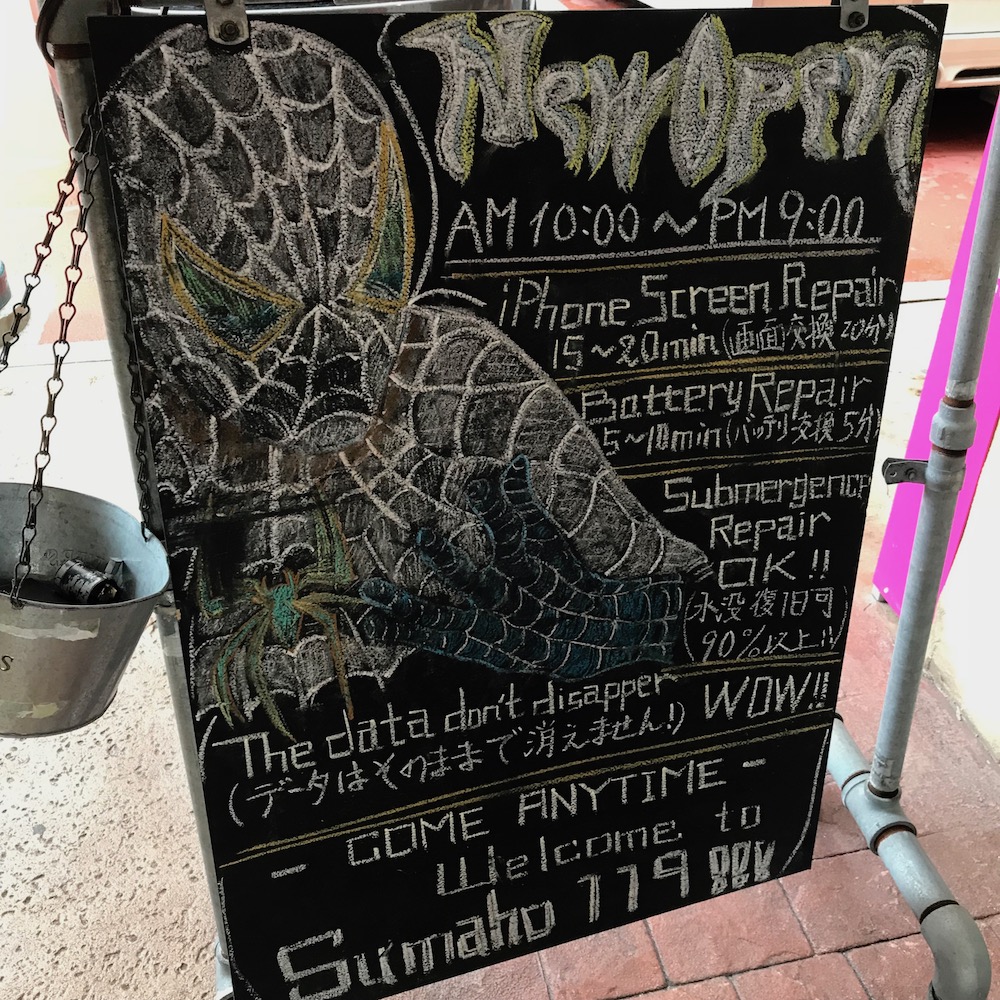 New Open
AM 10:00 ~ PM 9:00
iPhone Screen Repair
15~20min (画面交換 20分)
Battery Repair
5~10min (バッテリ交換 5分)
Submergence
Repair
OK!!
(水没復旧可
90%以上!!)
The data don't disapper
(データはそのままで消えません!)
WOW!!
- COME ANYTIME -
Welcome to
Sumaho 119 !!!